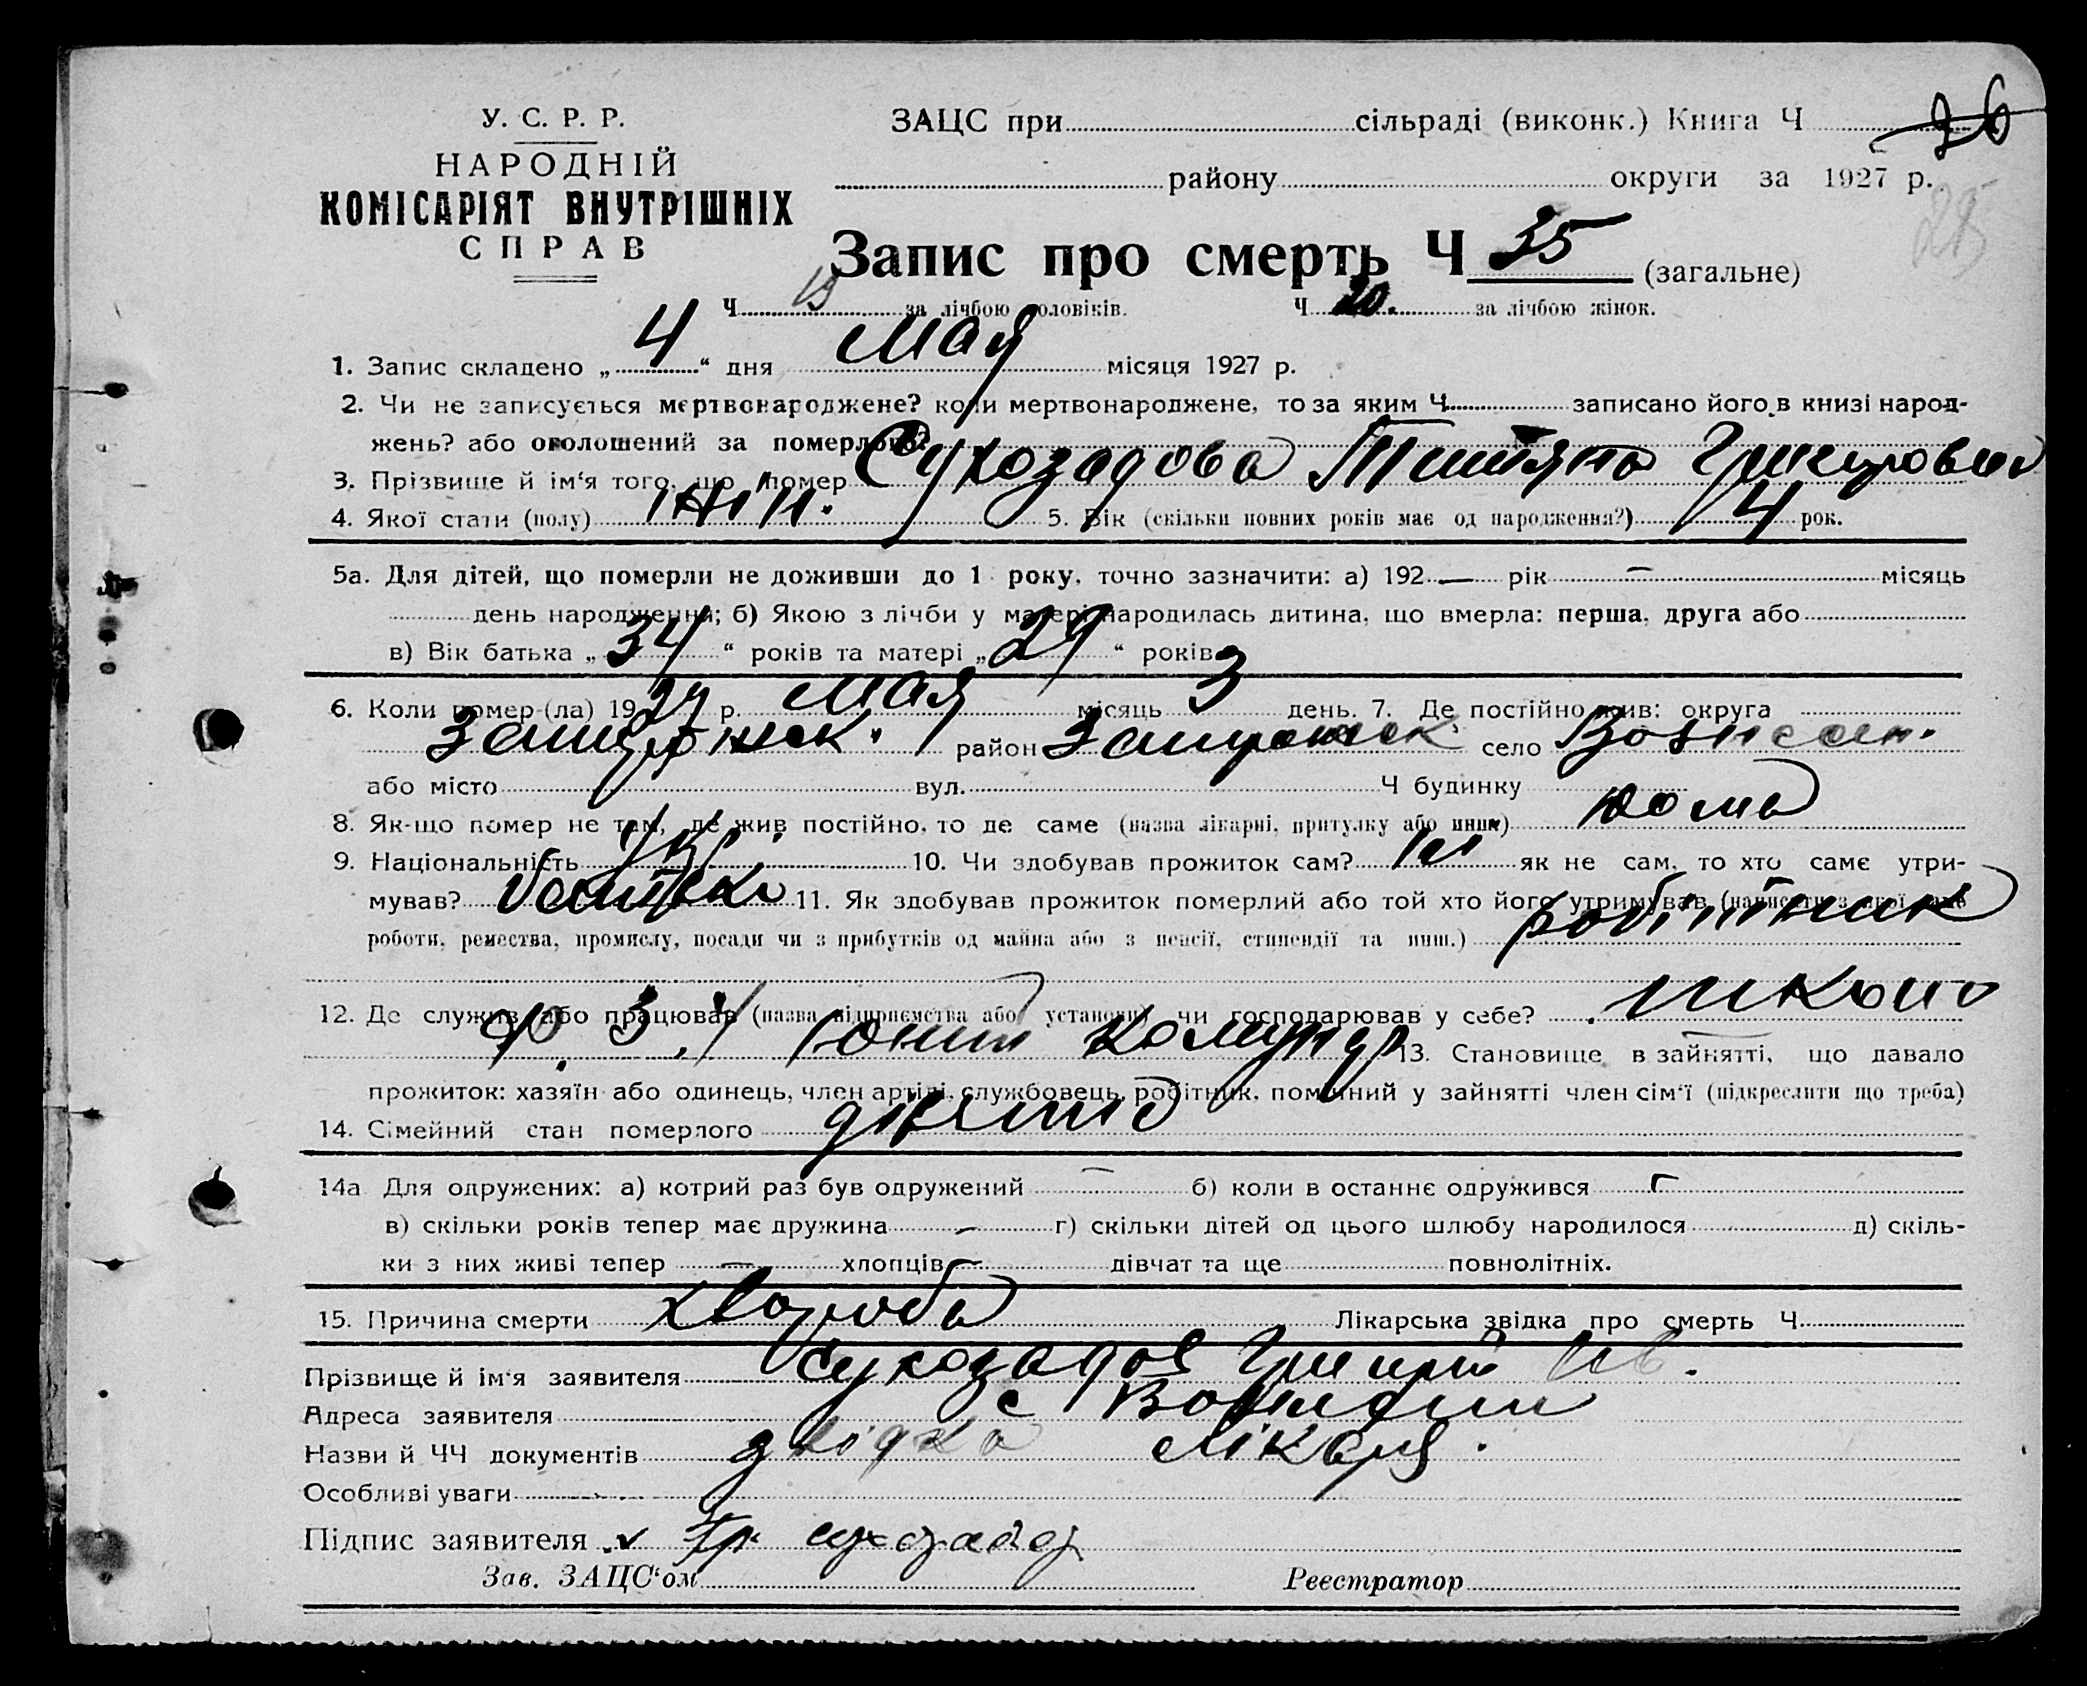 У. С. Р. Р.
НАРОДНІЙ
КОМІСАРІЯТ ВНУТРІШНІХ
СПРАВ
ЗАЦС при сільраді (виконк.) Книга Ч 26
району округи за 1927 р.
25
Запис про смерть Ч 35 (загальне)
Ч 15 за лічбою чоловіків. Ч 20. за лічбою жінок.
1. Запис складено „ 4 “ дня мая місяця 1927 р.
2. Чи не записується мертвонароджене? коли мертвонароджене, то за яким Ч. записано його в книзі народ-
жень? або оголошений за померлого?
3. Прізвище й ім‘я того, що помер Сухозадова Тетяна
4. Якої стати (полу) жін. 5. Вік (скільки повних років має од народження?) 4 рок.
5а. Для дітей, що померли не доживши до 1 року, точно зазначити: а) 192 — рік — місяць
день народження; б) Якою з лічби у матері народилась дитина, що вмерла: перша, друга або
в) Вік батька „ 34 “ років та матері „ 29 “ років
6. Коли помер (ла) 1927 р. мая місяць 3 день. 7. Де постійно жив: округа
район село
або місто вул. Ч будинку
8. Як-що помер не там, де жив постійно, то де саме (назва лікарні, притулку або инш.) дома
9. Національність Укр. 10. Чи здобував прожиток сам? ні як не сам, то хто саме утри-
мував? батько 11. Як здобував прожиток померлий або той хто його утримував (написати з якої саме
роботи, ремества, промислу, посади чи з прибутків од майна або з пенсії, стипендії та инш.) робітник
12. Де служив або працював (назва підприємства або установи) чи господарював у себе? школо
Ф. З. У. Юний комунар 13. Становище в зайнятті, що давало
прожиток: хазяїн або одинець, член артілі, службовець, робітник, помічний у зайнятті член сім‘ї (підкреслити що треба)
14. Сімейний стан померлого
14а Для одружених: а) котрий раз був одружений — б) коли в останнє одружився
в) скільки років тепер має дружина — г) скільки дітей од цього шлюбу народилося д) скіль-
ки з них живі тепер — хлопців — дівчат та ще повнолітніх.
15. Причина смерти хвороба Лікарська звідка про смерть Ч.
Прізвище й ім‘я заявителя Сухозадов Ів.
Адреса заявителя с
Назви й ЧЧ документів звідка лікаря.
Особливі уваги
Підпис заявителя Гр
Зав. ЗАЦС‘ом Реєстратор